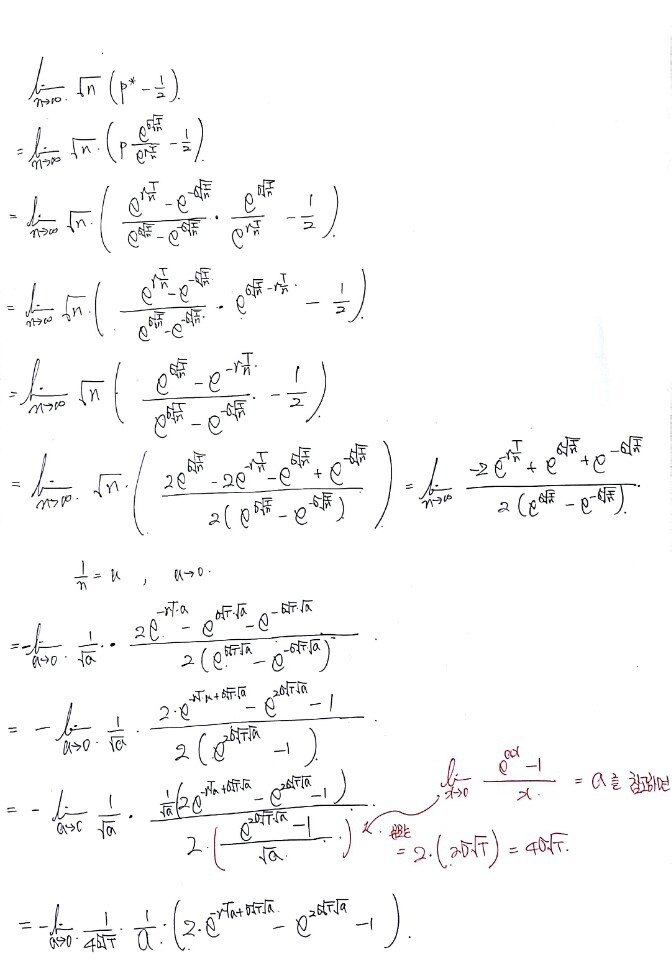 lim_{n→∞} √n (p* - 1/2).
= lim_{n→∞} √n · (p e^{σ√(T/n)}/e^{r T/n} - 1/2)
= lim_{n→∞} √n · ( (e^{r T/n} - e^{-σ√(T/n)})/(e^{σ√(T/n)} - e^{-σ√(T/n)}) · e^{σ√(T/n)}/e^{r T/n} - 1/2 )
= lim_{n→∞} √n · ( (e^{r T/n} - e^{-σ√(T/n)})/(e^{σ√(T/n)} - e^{-σ√(T/n)}) · e^{σ√(T/n) - r T/n} - 1/2 )
= lim_{n→∞} √n ( (e^{σ√(T/n)} - e^{-r T/n})/(e^{σ√(T/n)} - e^{-σ√(T/n)}) - 1/2 )
= lim_{n→∞} √n · ( (2e^{σ√(T/n)} - 2e^{-r T/n} - e^{σ√(T/n)} + e^{-σ√(T/n)})/(2(e^{σ√(T/n)} - e^{-σ√(T/n)})) ) = lim_{n→∞} (-2e^{-r T/n} + e^{σ√(T/n)} + e^{-σ√(T/n)})/(2(e^{σ√(T/n)} - e^{-σ√(T/n)})).
1/n = a , a→0.
= -lim_{a→0} 1/√a · (2e^{-rT·a} - e^{σ√T·√a} - e^{-σ√T·√a})/(2(e^{σ√T√a} - e^{-σ√T·√a})).
= - lim_{a→0} 1/√a · (2·e^{-rTa+σ√T·√a} - e^{2σ√T√a} - 1)/(2(e^{2σ√T√a} - 1)).
= - lim_{a→0} 1/√a · (1/√a (2e^{-rTa+σ√T√a} - e^{2σ√T√a} - 1))/(2·((e^{2σ√T√a} - 1)/√a)).
lim_{x→0} (e^{ax} - 1)/x = a 를 참고하면
= 2·(2σ√T) = 4σ√T.
= -lim_{a→0} 1/(4σ√T) · 1/a · (2·e^{-rTa+σ√T√a} - e^{2σ√T√a} - 1).